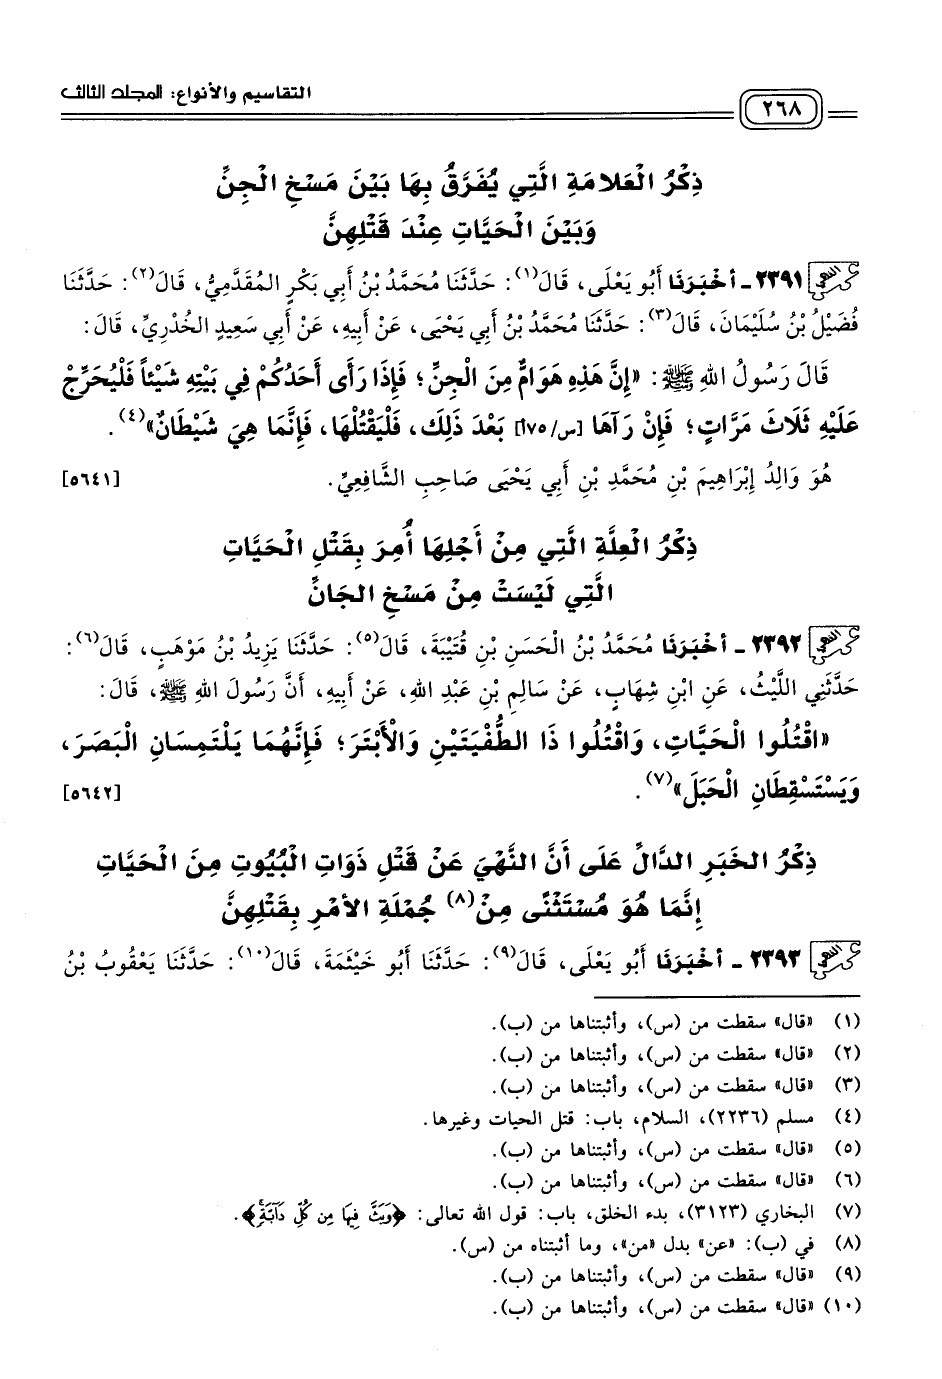 التقاسيم والأنواع: المجلد الثالث
٢٦٨
ذِكْرُ الْعَلامَةِ الَّتِي يُفَرَّقُ بِهَا بَيْنَ مَسْخِ الْجِنِّ
وَبَيْنَ الْحَيَّاتِ عِنْدَ قَتْلِهِنَّ
٢٣٩١ - أَخْبَرَنَا أَبُو يَعْلَى، قَالَ(١): حَدَّثَنَا مُحَمَّدُ بْنُ أَبِي بَكْرٍ المُقَدَّمِيُّ، قَالَ(٢): حَدَّثَنَا
فُضَيْلُ بْنُ سُلَيْمَانَ، قَالَ(٣): حَدَّثَنَا مُحَمَّدُ بْنُ أَبِي يَحْيَى، عَنْ أَبِيهِ، عَنْ أَبِي سَعِيدٍ الخُدْرِيِّ، قَالَ:
قَالَ رَسُولُ اللهِ ﷺ: «إِنَّ هَذِهِ هَوَامٌّ مِنَ الْجِنِّ؛ فَإِذَا رَأَى أَحَدُكُمْ فِي بَيْتِهِ شَيْئاً فَلْيُحَرِّجْ
عَلَيْهِ ثَلَاثَ مَرَّاتٍ؛ فَإِنْ رَآهَا [س/١٧٥أ] بَعْدَ ذَلِكَ، فَلْيَقْتُلْهَا، فَإِنَّمَا هِيَ شَيْطَانٌ»(٤).
هُوَ وَالِدُ إِبْرَاهِيمَ بْنِ مُحَمَّدِ بْنِ أَبِي يَحْيَى صَاحِبِ الشَّافِعِيِّ. [٥٦٤١]
ذِكْرُ الْعِلَّةِ الَّتِي مِنْ أَجْلِهَا أُمِرَ بِقَتْلِ الْحَيَّاتِ
الَّتِي لَيْسَتْ مِنْ مَسْخِ الجَانِّ
٢٣٩٢ - أَخْبَرَنَا مُحَمَّدُ بْنُ الْحَسَنِ بْنِ قُتَيْبَةَ، قَالَ(٥): حَدَّثَنَا يَزِيدُ بْنُ مَوْهَبٍ، قَالَ(٦):
حَدَّثَنِي اللَّيْثُ، عَنِ ابْنِ شِهَابٍ، عَنْ سَالِمِ بْنِ عَبْدِ اللهِ، عَنْ أَبِيهِ، أَنَّ رَسُولَ اللهِ ﷺ، قَالَ:
«اقْتُلُوا الْحَيَّاتِ، وَاقْتُلُوا ذَا الطُّفْيَتَيْنِ وَالْأَبْتَرَ؛ فَإِنَّهُمَا يَلْتَمِسَانِ الْبَصَرَ،
وَيَسْتَسْقِطَانِ الْحَبَلَ»(٧). [٥٦٤٢]
ذِكْرُ الخَبَرِ الدَّالِّ عَلَى أَنَّ النَّهْيَ عَنْ قَتْلِ ذَوَاتِ الْبُيُوتِ مِنَ الْحَيَّاتِ
إِنَّمَا هُوَ مُسْتَثْنًى مِنْ(٨) جُمْلَةِ الأَمْرِ بِقَتْلِهِنَّ
٢٣٩٣ - أَخْبَرَنَا أَبُو يَعْلَى، قَالَ(٩): حَدَّثَنَا أَبُو خَيْثَمَةَ، قَالَ(١٠): حَدَّثَنَا يَعْقُوبُ بْنُ
(١) «قال» سقطت من (س)، وأثبتناها من (ب).
(٢) «قال» سقطت من (س)، وأثبتناها من (ب).
(٣) «قال» سقطت من (س)، وأثبتناها من (ب).
(٤) مسلم (٢٢٣٦)، السلام، باب: قتل الحيات وغيرها.
(٥) «قال» سقطت من (س)، وأثبتناها من (ب).
(٦) «قال» سقطت من (س)، وأثبتناها من (ب).
(٧) البخاري (٣١٢٣)، بدء الخلق، باب: قول الله تعالى: ﴿وَبَثَّ فِيهَا مِن كُلِّ دَآبَّةٍ﴾.
(٨) في (ب): «عن» بدل «من»، وما أثبتناه من (س).
(٩) «قال» سقطت من (س)، وأثبتناها من (ب).
(١٠) «قال» سقطت من (س)، وأثبتناها من (ب).